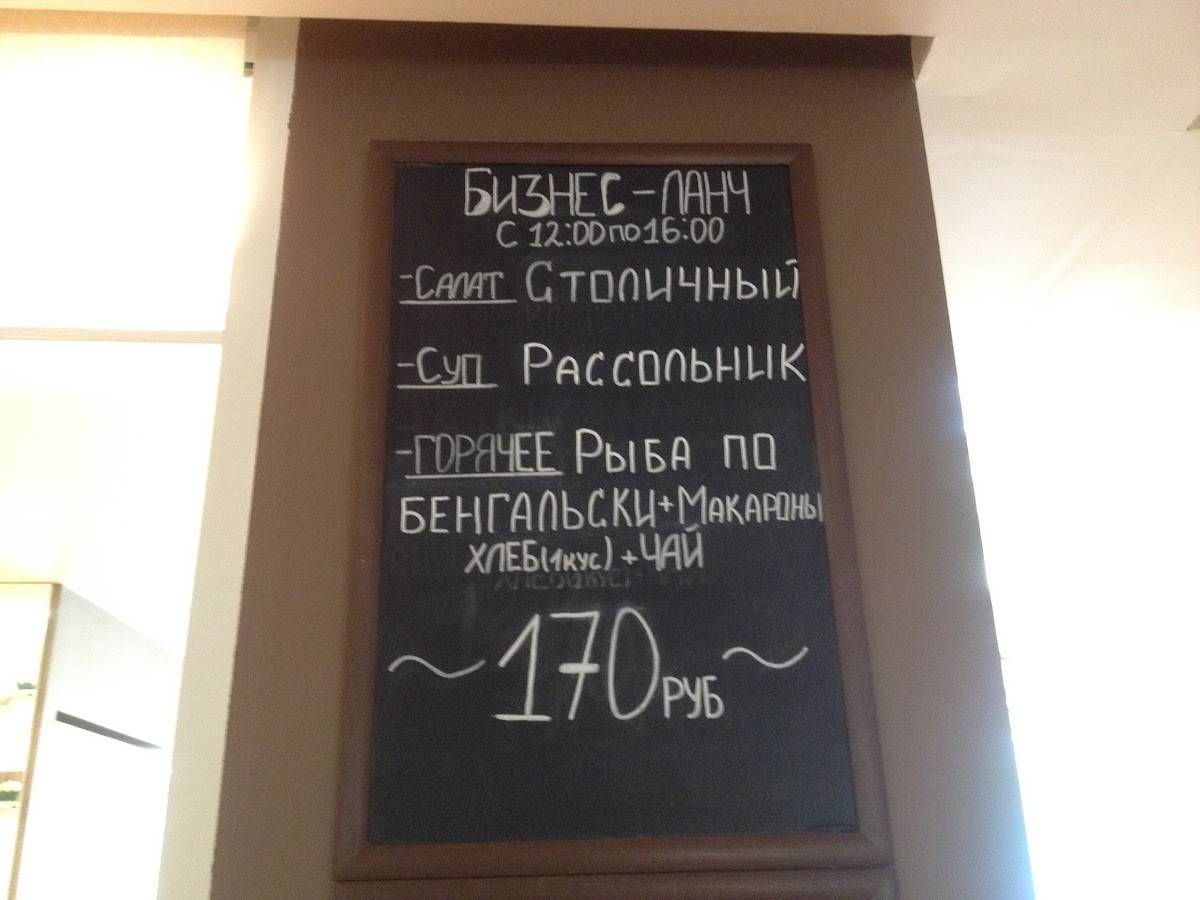 БИЗНЕС-ЛАНЧ
С 12:00 ПО 16:00
-САЛАТ СТОЛИЧНЫЙ
-СУП РАССОЛЬНИК
-ГОРЯЧЕЕ РЫБА ПО
БЕНГАЛЬСКИ+МАКАРОНЫ
ХЛЕБ(1кус)+ЧАЙ
~170РУБ~